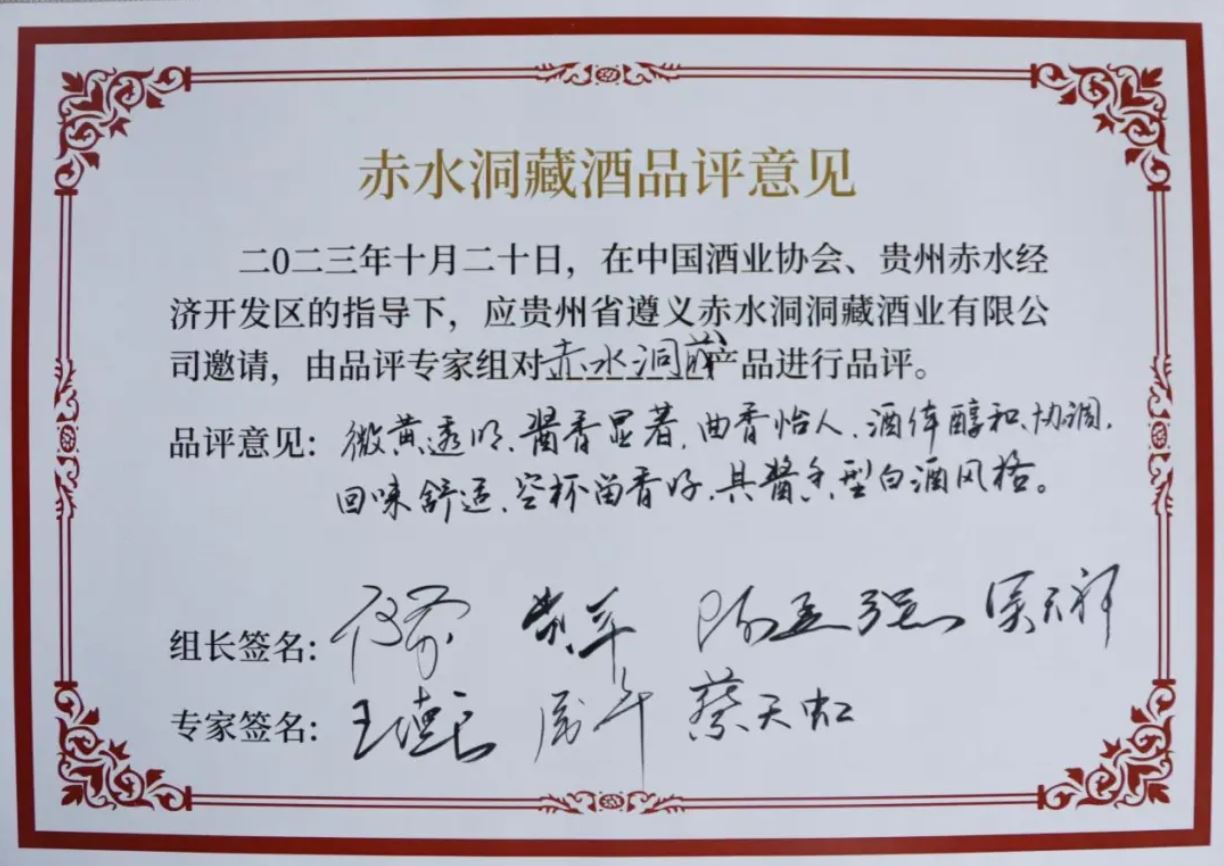 赤水洞藏酒品评意见
二0二三年十月二十日，在中国酒业协会、贵州赤水经
济开发区的指导下，应贵州省遵义赤水洞洞藏酒业有限公
司邀请，由品评专家组对赤水洞藏产品进行品评。
品评意见：微黄透明、酱香显著、曲香怡人、酒体醇和、协调、
回味舒适、空杯留香好、具酱香型白酒风格。
组长签名：吴天祥
专家签名：蔡天虹